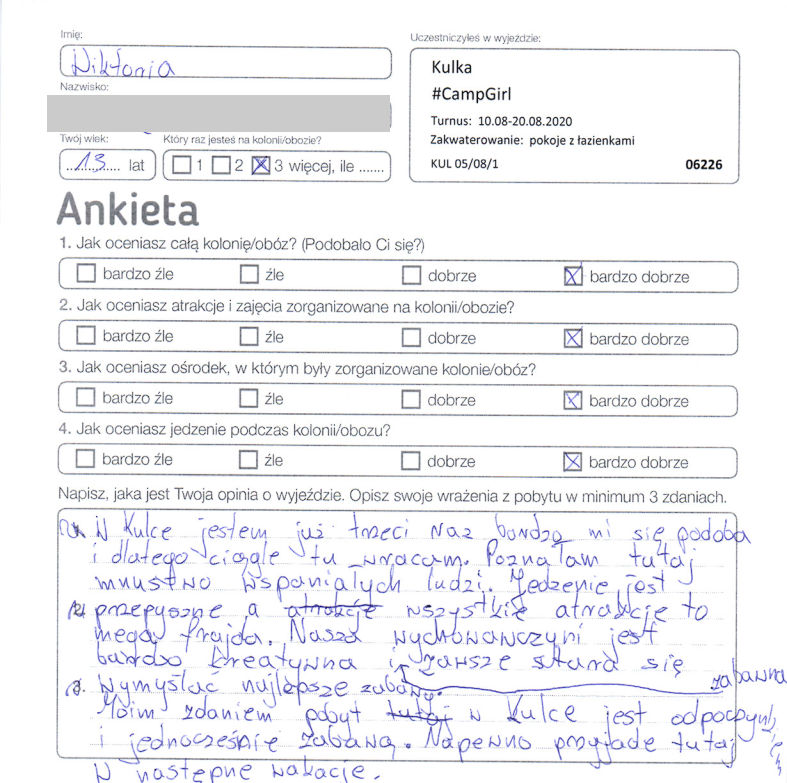 Imię:
Wiktoria
Nazwisko:
Twój wiek:
13 lat
Który raz jesteś na kolonii/obozie?
1 2 3 więcej, ile .......
Uczestniczyłeś w wyjeździe:
Kulka
#CampGirl
Turnus: 10.08-20.08.2020
Zakwaterowanie: pokoje z łazienkami
KUL 05/08/1 06226
Ankieta
1. Jak oceniasz całą kolonię/obóz? (Podobało Ci się?)
bardzo źle źle dobrze bardzo dobrze
2. Jak oceniasz atrakcje i zajęcia zorganizowane na kolonii/obozie?
bardzo źle źle dobrze bardzo dobrze
3. Jak oceniasz ośrodek, w którym były zorganizowane kolonie/obóz?
bardzo źle źle dobrze bardzo dobrze
4. Jak oceniasz jedzenie podczas kolonii/obozu?
bardzo źle źle dobrze bardzo dobrze
Napisz, jaka jest Twoja opinia o wyjeździe. Opisz swoje wrażenia z pobytu w minimum 3 zdaniach.
W Kulce jestem już trzeci raz bardzo mi się podoba
i dlatego ciągle tu wracam. Poznałam tutaj
mnustwo wspaniałych ludzi. Jedzenie jest
2. przepyszne a atrakcje wszystkie atrakcje to
mega frajda. Nasza wychowawczyni jest
bardzo kreatywna i zawsze stara się
zabawna
3. wymyślać najlepsze zabawy.
Moim zdaniem pobyt tutaj w Kulce jest odpoczyn
i jednocześnie zabawą. Napewno przyjade tutaj
w następne wakacje.